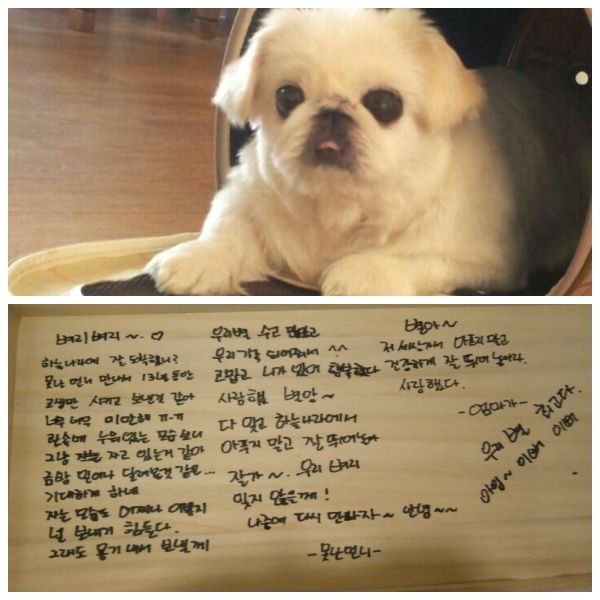 벼리 벼리 ~. ♡
하늘나라에 잘 도착했니?
못난 언니 만나서 13년동안
고생만 시키고 보낸것 같아
너무 너무 미안해 ㅠㅠ
관속에 누워있는 모습 보니
그냥 자고 있는거 같아
금방 일어나 달려올것 같은...
기대하게 하네
자는 모습도 어쩌나 이쁠지
널 보내기 힘든다.
그래도 용기 내서 보낼께
우리별 수고 많았고
우리가족 되어줘서 ^^
고맙고 니가 있어 행복했다
사랑해 별아 ~
다 잊고 하늘나라에서
아푸지 말고 잘 뛰어놀아
잘가 ~. 우리 벼리
잊지 않을께!
나중에 다시 만나자 ~ 안녕 ~~
-못난언니-
별아 ~
저 세상에서 아푸지 말고
건강하게 잘 뛰어 놀아라.
사랑했다.
- 엄마가 -
우리 별 최고다.
아빠 ~ 이뻐 이뻐